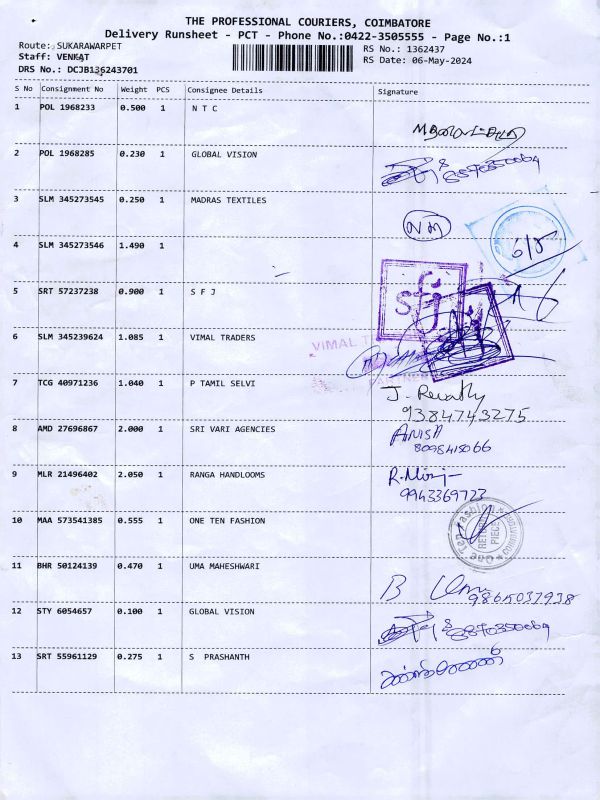 THE PROFESSIONAL COURIERS, COIMBATORE
Delivery Runsheet - PCT - Phone No.:0422-3505555 - Page No.:1
Route: SUKARAWARPET RS No.: 1362437
Staff: VENKAT RS Date: 06-May-2024
DRS No.: DCJB136243701
S No Consignment No Weight PCS Consignee Details Signature
1 POL 1968233 0.500 1 N T C
2 POL 1968285 0.230 1 GLOBAL VISION
3 SLM 345273545 0.250 1 MADRAS TEXTILES
4 SLM 345273546 1.490 1
5 SRT 57237238 0.900 1 S F J
sfj
6 SLM 345239624 1.085 1 VIMAL TRADERS
VIMAL
7 TCG 40971236 1.040 1 P TAMIL SELVI J. Revathy
9384743275
8 AMD 27696867 2.000 1 SRI VARI AGENCIES ANISH
8098415066
9 MLR 21496402 2.050 1 RANGA HANDLOOMS
9943369723
10 MAA 573541385 0.555 1 ONE TEN FASHION
One Ten Fashion
11 BHR 50124139 0.470 1 UMA MAHESHWARI B Uma
9865037938
12 STY 6054657 0.100 1 GLOBAL VISION
13 SRT 55961129 0.275 1 S PRASHANTH